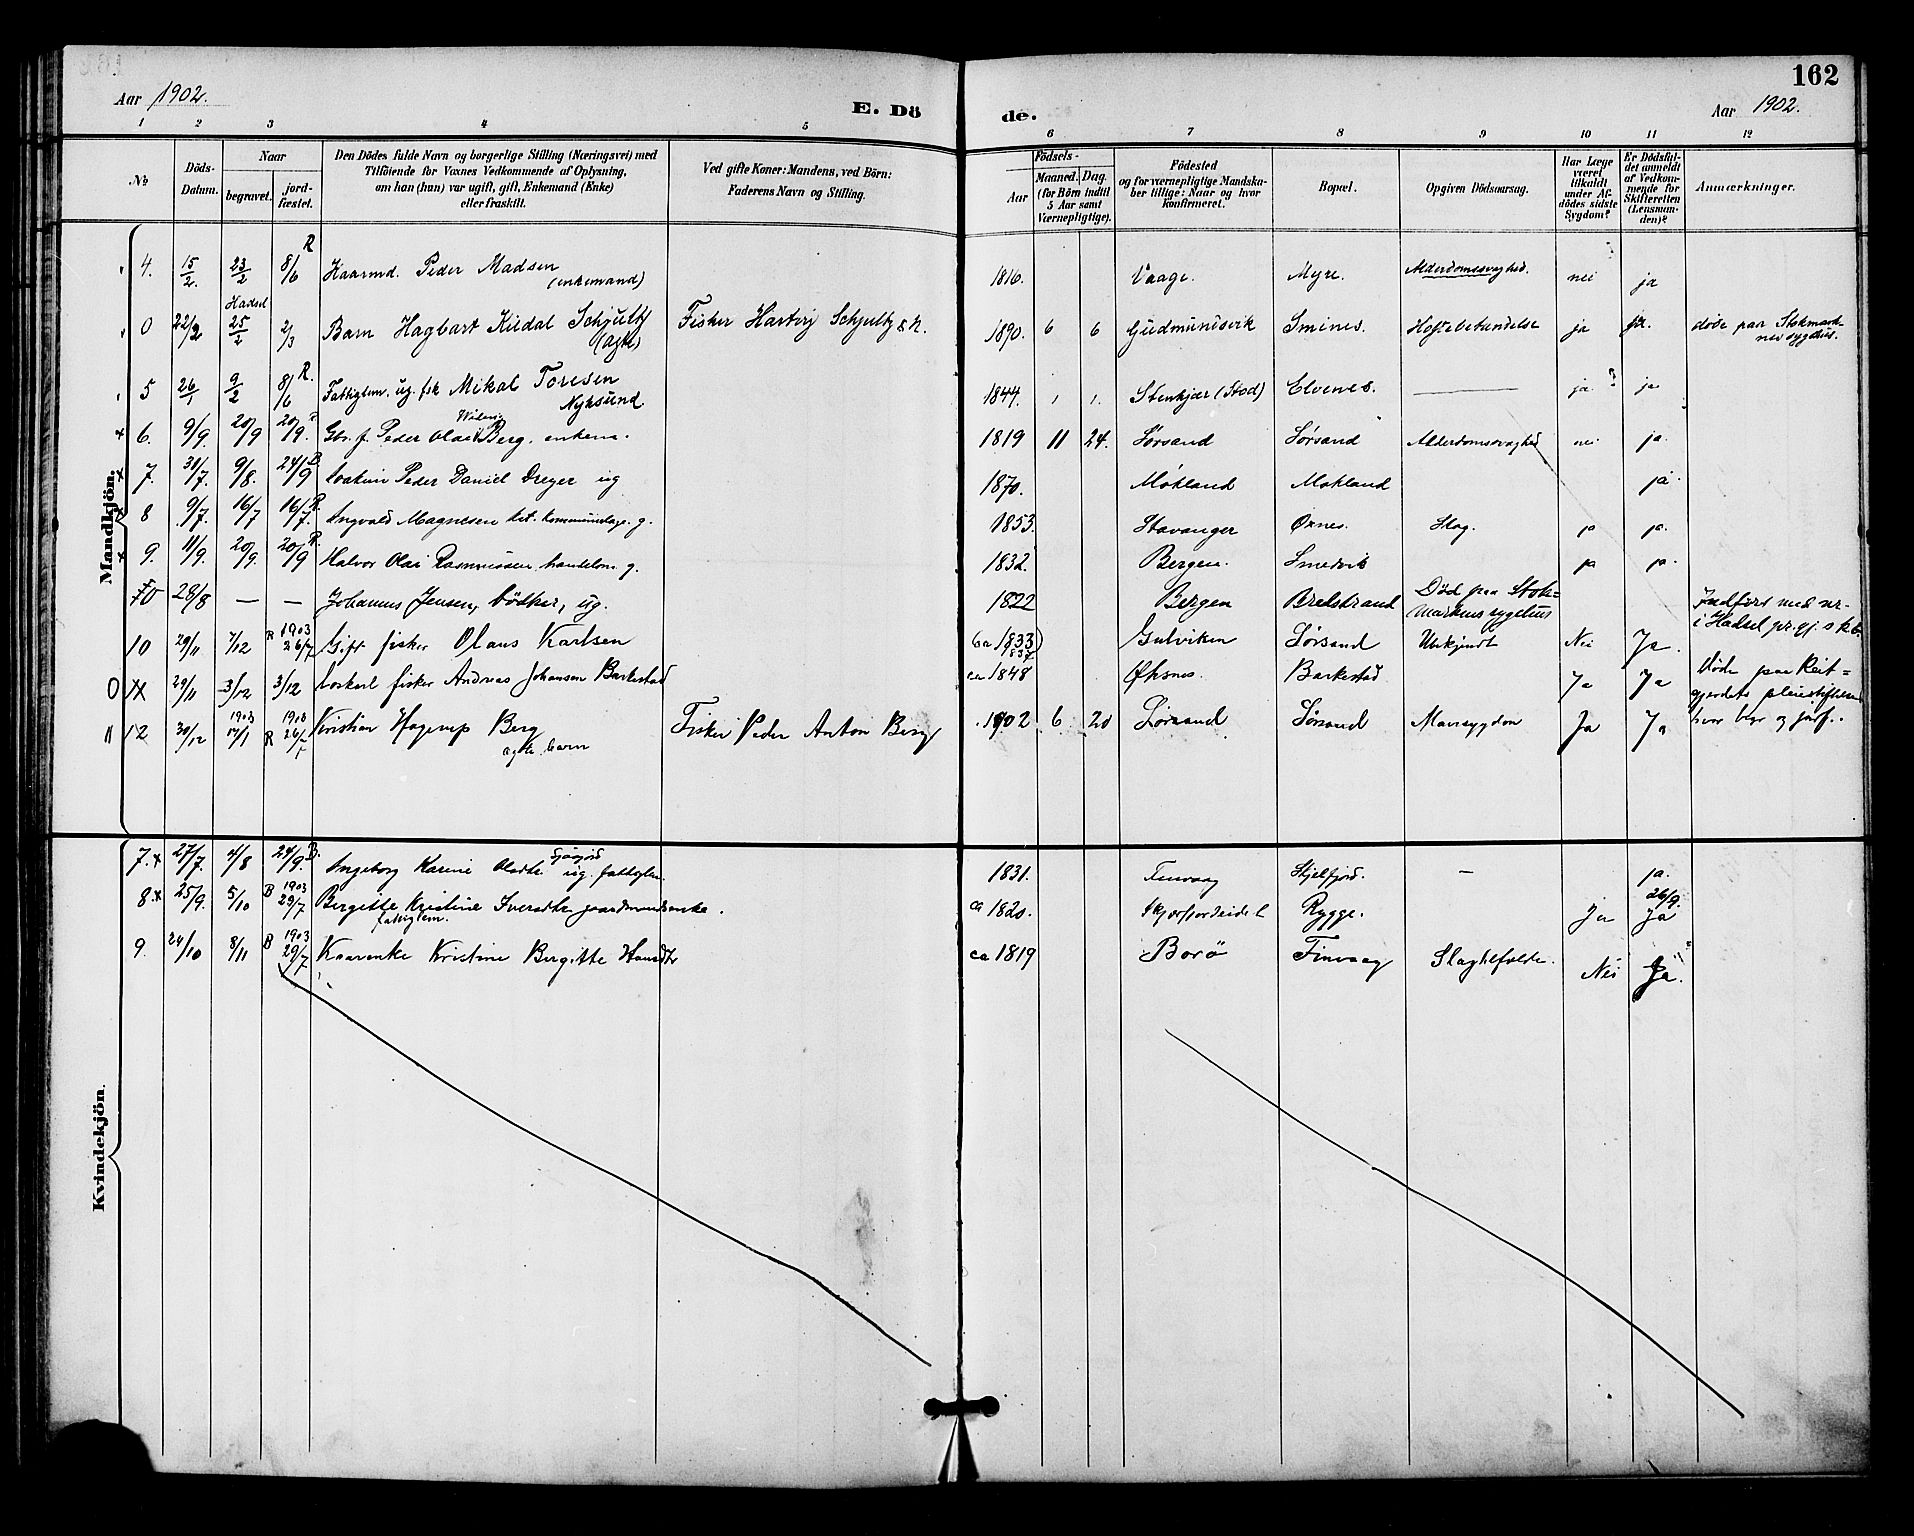 162
Aar 1902.
E. Dö
de.
Aar 1902.
1 2 3 4 5 6 7 8 9 10 11 12
No
Döds-
Datum.
Naar
begravet.
jord-
fæstet.
Den Dödes fulde Navn og borgerlige Stilling (Næringsvei) med
Tilföiende for Voxnes Vedkommende af Oplysning,
om han (hun) var ugift, gift, Enkemand (Enke)
eller fraskilt.
Ved gifte Koner: Mandens, ved Börn:
Faderens Navn og Stilling.
Födsels-
Aar
Maaned. Dag.
(for Börn indtil
5 Aar samt
Værnepligtige).
Födested
og for værnepligtige Mandska-
ber tillige: Naar og hvor
konfirmeret.
Bopæl.
Opgiven Dödsaarsag.
Har Læge
været
tilkaldt
under Af-
dödes sidste
Sygdom?
Er Dödsfal-
det anmeldt
af Vedkom-
mende for
Skifteretten
(Lensman-
den)?
Anmærkninger.
Mandkjön.
4. 15/2. 23/2 8/6 R Kaarmd. Peder Madsen 1816. Vaage. Myre. Alderdomssvaghed. nei ja
(enkemand)
Hadsel
0 22/2 25/2 2/3 Barn Hagbart Kildal Schjultz Fisker Hartvig Schjultz & h. 1890. 6 6 Gudmundsvik Smines. Hoftebetændelse ja ja. döde paa Stokmark-
(ægte) nes sygehus.
5 26/1 9/2 8/6 R. Fattiglem. ug. fsk Mikal Toresen 1844. 1 1. Stenkjær (Stod) Elvenes. — ja ? ja
Nyksund
6. 9/9. 20/9 20/9. Gbr. f. Peder Olai Berg. enkem. 1819 11 24. Sørsand Sørsand Alderdomssvaghed nei ja.
7. 31/7. 9/8. 24/9 B Joakim Peder Daniel Dreyer ug 1870. Mokland Mokland ja
8 9/7. 16/7 16/7. R. Ingvald Magnesen g. 1853. Stavanger Øxnes. Slag. ja ja.
9. 11/9. 20/9. 20/9 R. Halvor Olai Rasmussen handelsm. g. 1832. Bergen. Smedvik ja ja.
10 28/8 — — Johannes Jensen, bødker, ug. 1822 Bergen Breistrand Død paa Stok-
markens sygehus Indført med nr-
i Hadsel
10 29/11 7/12 R 1903 26/7 Gift fisker Olaus Karlsen Ca 1833) Gulviken Sørsand Ubkjendt Nei Ja.
1837
0 29/11 3/12 3/12 fisker Andreas Johansen Barkestad ca 1848 Øksnes. Barkestad Ja Ja Døde paa Reit-
gjerdets pleiestiftelse
hvor begr og jordf..
12 30/12 1903 14/1 R 1903 26/7 Kristian Hagerup Berg Fisker Peder Anton Berg 1902 6 20 Sørsand Sørsand Mavesygdon Ja Ja
ægte barn
Kvindekjön.
7. x 27/7. 4/8 24/9. B. Ingeborg Karine Olsdtr. ug. fattiglem. 1831. Finvaag Skjelfjord. — ja.
8 x 25/9. 5/10 B 1903 29/7 Bergitte Kristine Iversdtr gaardmandsenke. ca 1820. Rygge. Ja 26/9. Ja
fattiglem.
9. 24/10 8/11 B 1903 29/7 Kaarenke Kristine Bergitte Hansdtr ca 1819 Borø Finvaag Slagtilfælde. Nei Ja.